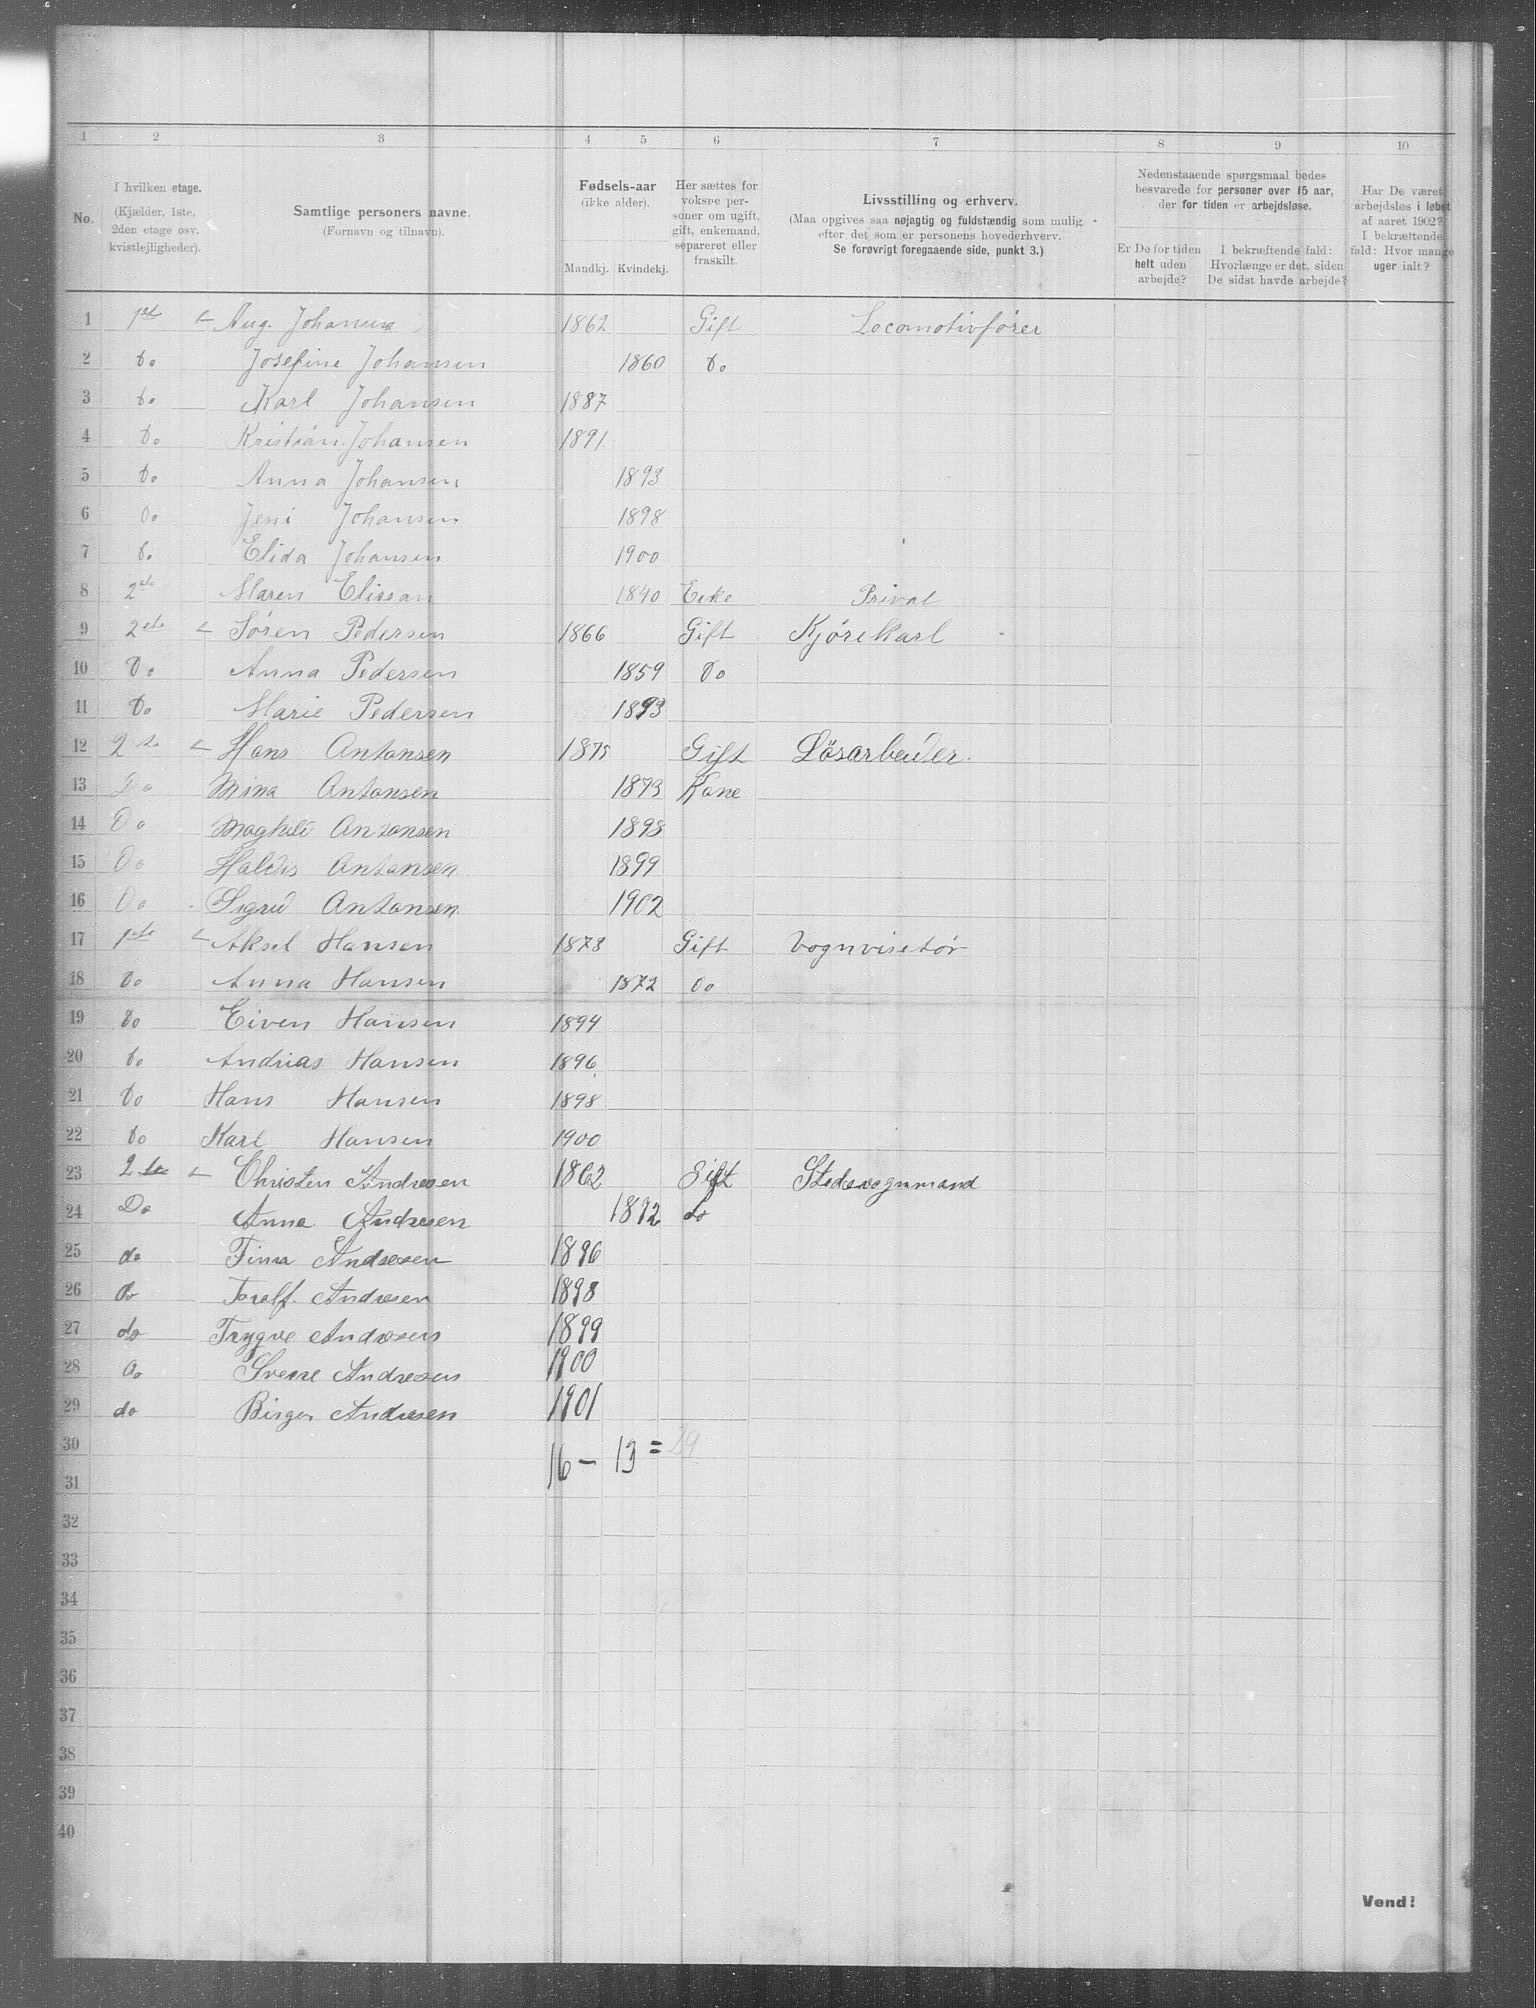 1 2 3 4 5 6 7 8 9 10
No.
I hvilken etage.
(Kjælder, 1ste,
2den etage osv.
kvistlejligheder).
Samtlige personers navne.
(Fornavn og tilnavn).
Fødsels-aar
(ikke alder).
Mandkj. Kvindekj.
Her sættes for
voksne per-
soner om ugift,
gift, enkemand,
separeret eller
fraskilt.
Livsstilling og erhverv.
(Maa opgives saa nøjagtig og fuldstændig som mulig
efter det som er personens hovederhverv.
Se forøvrigt foregaaende side, punkt 3.)
Nedenstaaende spørgsmaal bedes
besvarede for personer over 15 aar,
der for tiden er arbejdsløse.
Er De for tiden
helt uden
arbejde?
I bekræftende fald:
Hvorlænge er det, siden
De sidst havde arbejde?
Har De været
arbejdsløs i løbet
af aaret 1902?
I bekræftende
fald: Hvor mange
uger ialt?
1 1ste Aug. Johansen 1862 Gift Locomotivfører
2 Do Josefine Johansen 1860 Do
3 Do Karl Johansen 1887
4 Do Kristian Johansen 1891
5 Do Anna Johansen 1893
6 Do Jeni Johansen 1898
7 Do Elida Johansen 1900
8 2de Maren Elissan 1840 Enke Privat
9 2de Søren Pedersen 1866 Gift Kjørekarl
10 Do Anna Pedersen 1859 Do
11 Do Marie Pedersen 1893
12 2de Hans Antonsen Gift Løsarbeider.
13 Do Mina Antonsen 1873 Kone
14 Do Maghild Antonsen 1898
15 Do Haldis Antonsen 1899
16 Do Sigrid Antonsen 1902
17 1ste Aksel Hansen 1873 Gift Vognvisetør
18 Do Anna Hansen 1872 Do
19 Do Eiven Hansen 1894
20 Do Andrias Hansen 1896
21 Do Hans Hansen 1898
22 Do Karl Hansen 1900
23 2de Christen Andresen 1862 Gift Stedsvognmand
24 Do Anna Andresen 1872 do
25 do Finn Andresen 1896
26 do Toralf Andresen 1898
27 do Trygve Andresen 1899
28 do Sverre Andresen 1900
29 do Birger Andresen 1901
30
16 – 13 = 29
31
32
33
34
35
36
37
38
39
40
Vend!